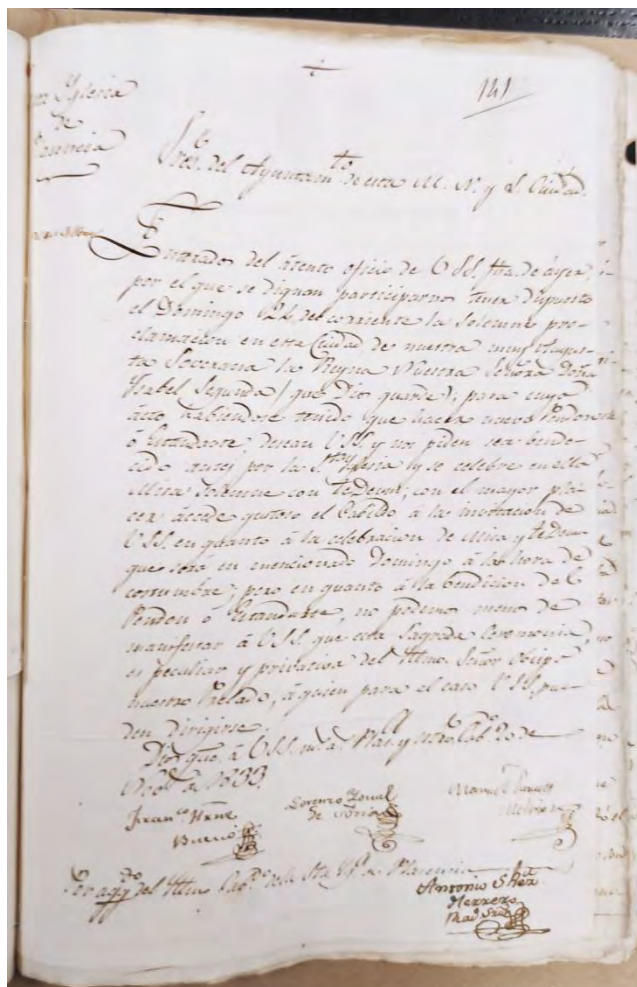 141
Yglesia
de
Plasencia
Sres. del Ayuntamto. de esta M. N. y L. Ciudad.
Enterado del atento oficio de USS. fha. de áyer,
por el que se dignan participarnos tener dispuesto
el Domingo 24, del corriente la solemne pro-
clamacion en esta Ciudad de nuestra muy Augus-
ta Soverana la Reyna Nuestra Señora Doña
Ysabel Segunda (que Dios guarde); para cuyo
ácto, habiendose tenido que hacer nuevo Pendon
ó Estandarte, desean USS. y nos piden sea bende-
cido por la Sta. Yglesia y se celebre en ella
Misa solemne con teDeum; con el mayor pla-
cer áccede gustoso el Cabildo á la invitacion de
USS. en quanto á la celebracion de Misa y teDeum
que será en mencionado Domingo á la hora de
costumbre; pero en quanto á la bendicion del
Pendon ó Estandarte, no podemos menos de
manifestar á USS. que esta Sagrada Ceremonia,
es peculiar y privativa del Yltmo. Señor Obispo
nuestro Prelado, á quien para el caso USS. pue-
den dirigirse.
Dios gue. á USS. ms. as. Plasa. y ntro. Cabo. 20 de
Nobe. de 1833.
Franco.
Bueno
Lorenzo
de Soria
Manuel
Por del Yltmo. Cabdo. de la Sta. Yga. de Plasencia
Antonio
Herrero